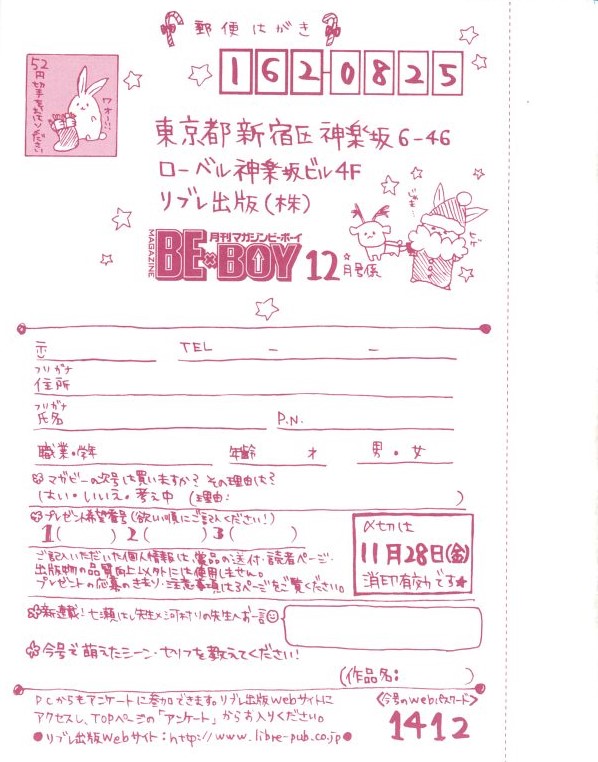 郵便はがき
52円切手をおはりください
ワオー!!
162-0825
東京都新宿区神楽坂6-46
ローベル神楽坂ビル4F
リブレ出版(株)
じゃも…
ビゲ
MAGAZINE
月刊マガジンビーボーイ
BE×BOY 12月号係
〒 TEL - -
フリガナ
住所
フリガナ
氏名 P.N.
職業・学年 年齢 才 男・女
マガビーの次号は買いますか? その理由は?
(はい・いいえ・考え中 (理由: )
プレゼント希望番号(欲い順にご記入ください!)
1( ) 2( ) 3( )
〆切は
11月28日(金)
消印有効です★
ご記入いただいた個人情報は、賞品の送付・読者ページ・
出版物の品質向上以外には使用しません。
プレゼントの応募のきまり・注意事項は、ページをご覧ください。
新連載!七瀬はし先生×河村りの先生へお一言
今号で萌えたシーン・セリフを教えてください!
(作品名: )
PCからもアンケートに参加できます。リブレ出版Webサイトに
アクセスし、TOPページの「アンケート」からお入りください。
●リブレ出版Webサイト:http://www.libre-pub.co.jp●
<今号のWebパスワード>
1412